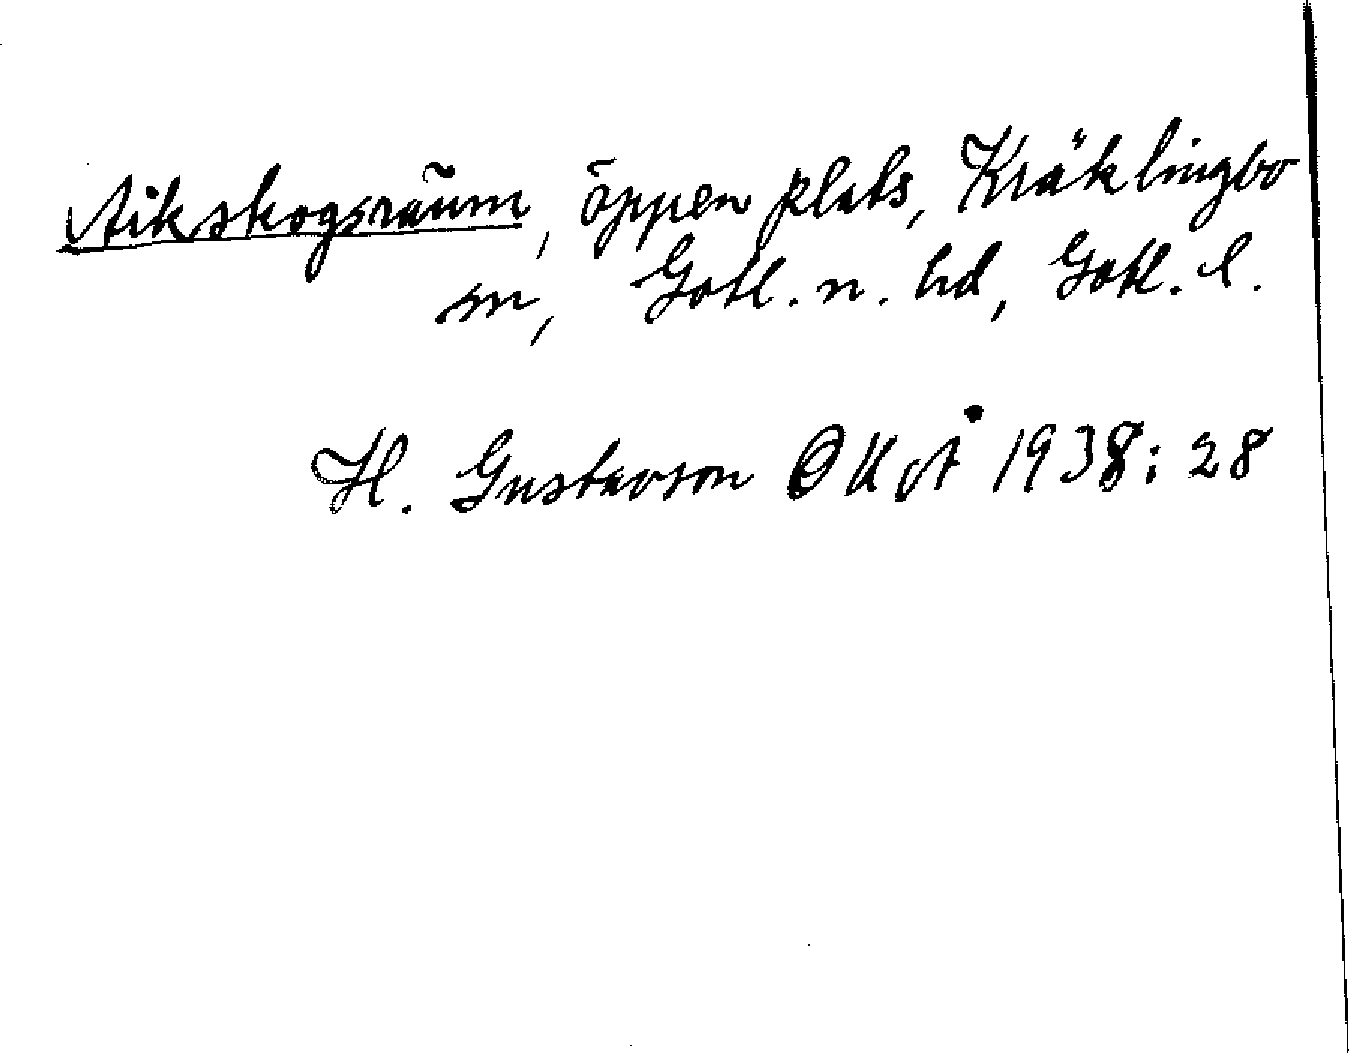 Aikskogsraum, öppen plats, Kräklingbo
sn, Gotl. n. hd, Gotl. l.
H. Gustavson OUÅ 1938: 28